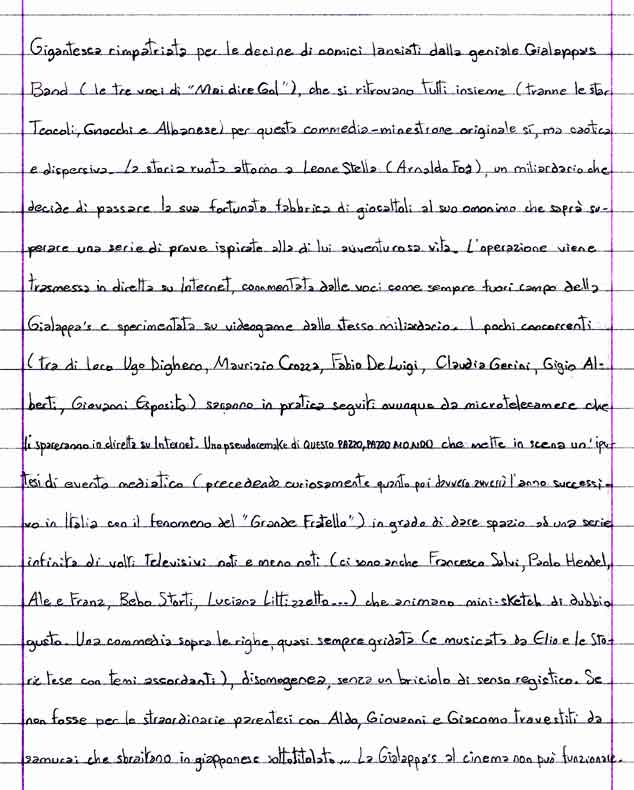 Gigantesca rimpatriata per le decine di comici lanciati dalla geniale Gialappas
Band (le tre voci di "Mai dire Gol"), che si ritrovano tutti insieme (tranne le star
Teocoli, Gnocchi e Albanese) per questa commedia-minestrone originale sì, ma caotica
e dispersiva. La storia ruota attorno a Leone Stella (Arnoldo Foà), un miliardario che
decide di passare la sua fortunata fabbrica di giocattoli al suo omonimo che saprà su-
perare una serie di prove ispirate alla di lui avventurosa vita. L'operazione viene
trasmessa in diretta su Internet, commentata dalle voci come sempre fuori campo della
Gialappa's e sperimentata su videogame dallo stesso miliardario. I pochi concorrenti
(tra di loro Ugo Dighero, Maurizio Crozza, Fabio De Luigi, Claudia Gerini, Gigio Al-
berti, Giovanni Esposito) saranno in pratica seguiti ovunque da microtelecamere che
li spareranno in diretta su Internet. Uno pseudoremake di QUESTO PAZZO, PAZZO MONDO che mette in scena un'ipo-
tesi di evento mediatico (precedendo curiosamente quanto poi davvero avverrà l'anno successi-
vo in Italia con il fenomeno del "Grande Fratello") in grado di dare spazio ad una serie
infinita di volti televisivi noti e meno noti (ci sono anche Francesco Salvi, Paolo Hendel,
Ale e Franz, Bebo Storti, Luciana Littizzetto...) che animano mini-sketch di dubbio
gusto. Una commedia sopra le righe, quasi sempre gridata (e musicata da Elio e le Sto-
rie tese con temi assordanti), disomogenea, senza un briciolo di senso registico. Se
non fosse per le straordinarie parentesi con Aldo, Giovanni e Giacomo travestiti da
samurai che sbraitano in giapponese sottotitolato... La Gialappa's al cinema non può funzionare.